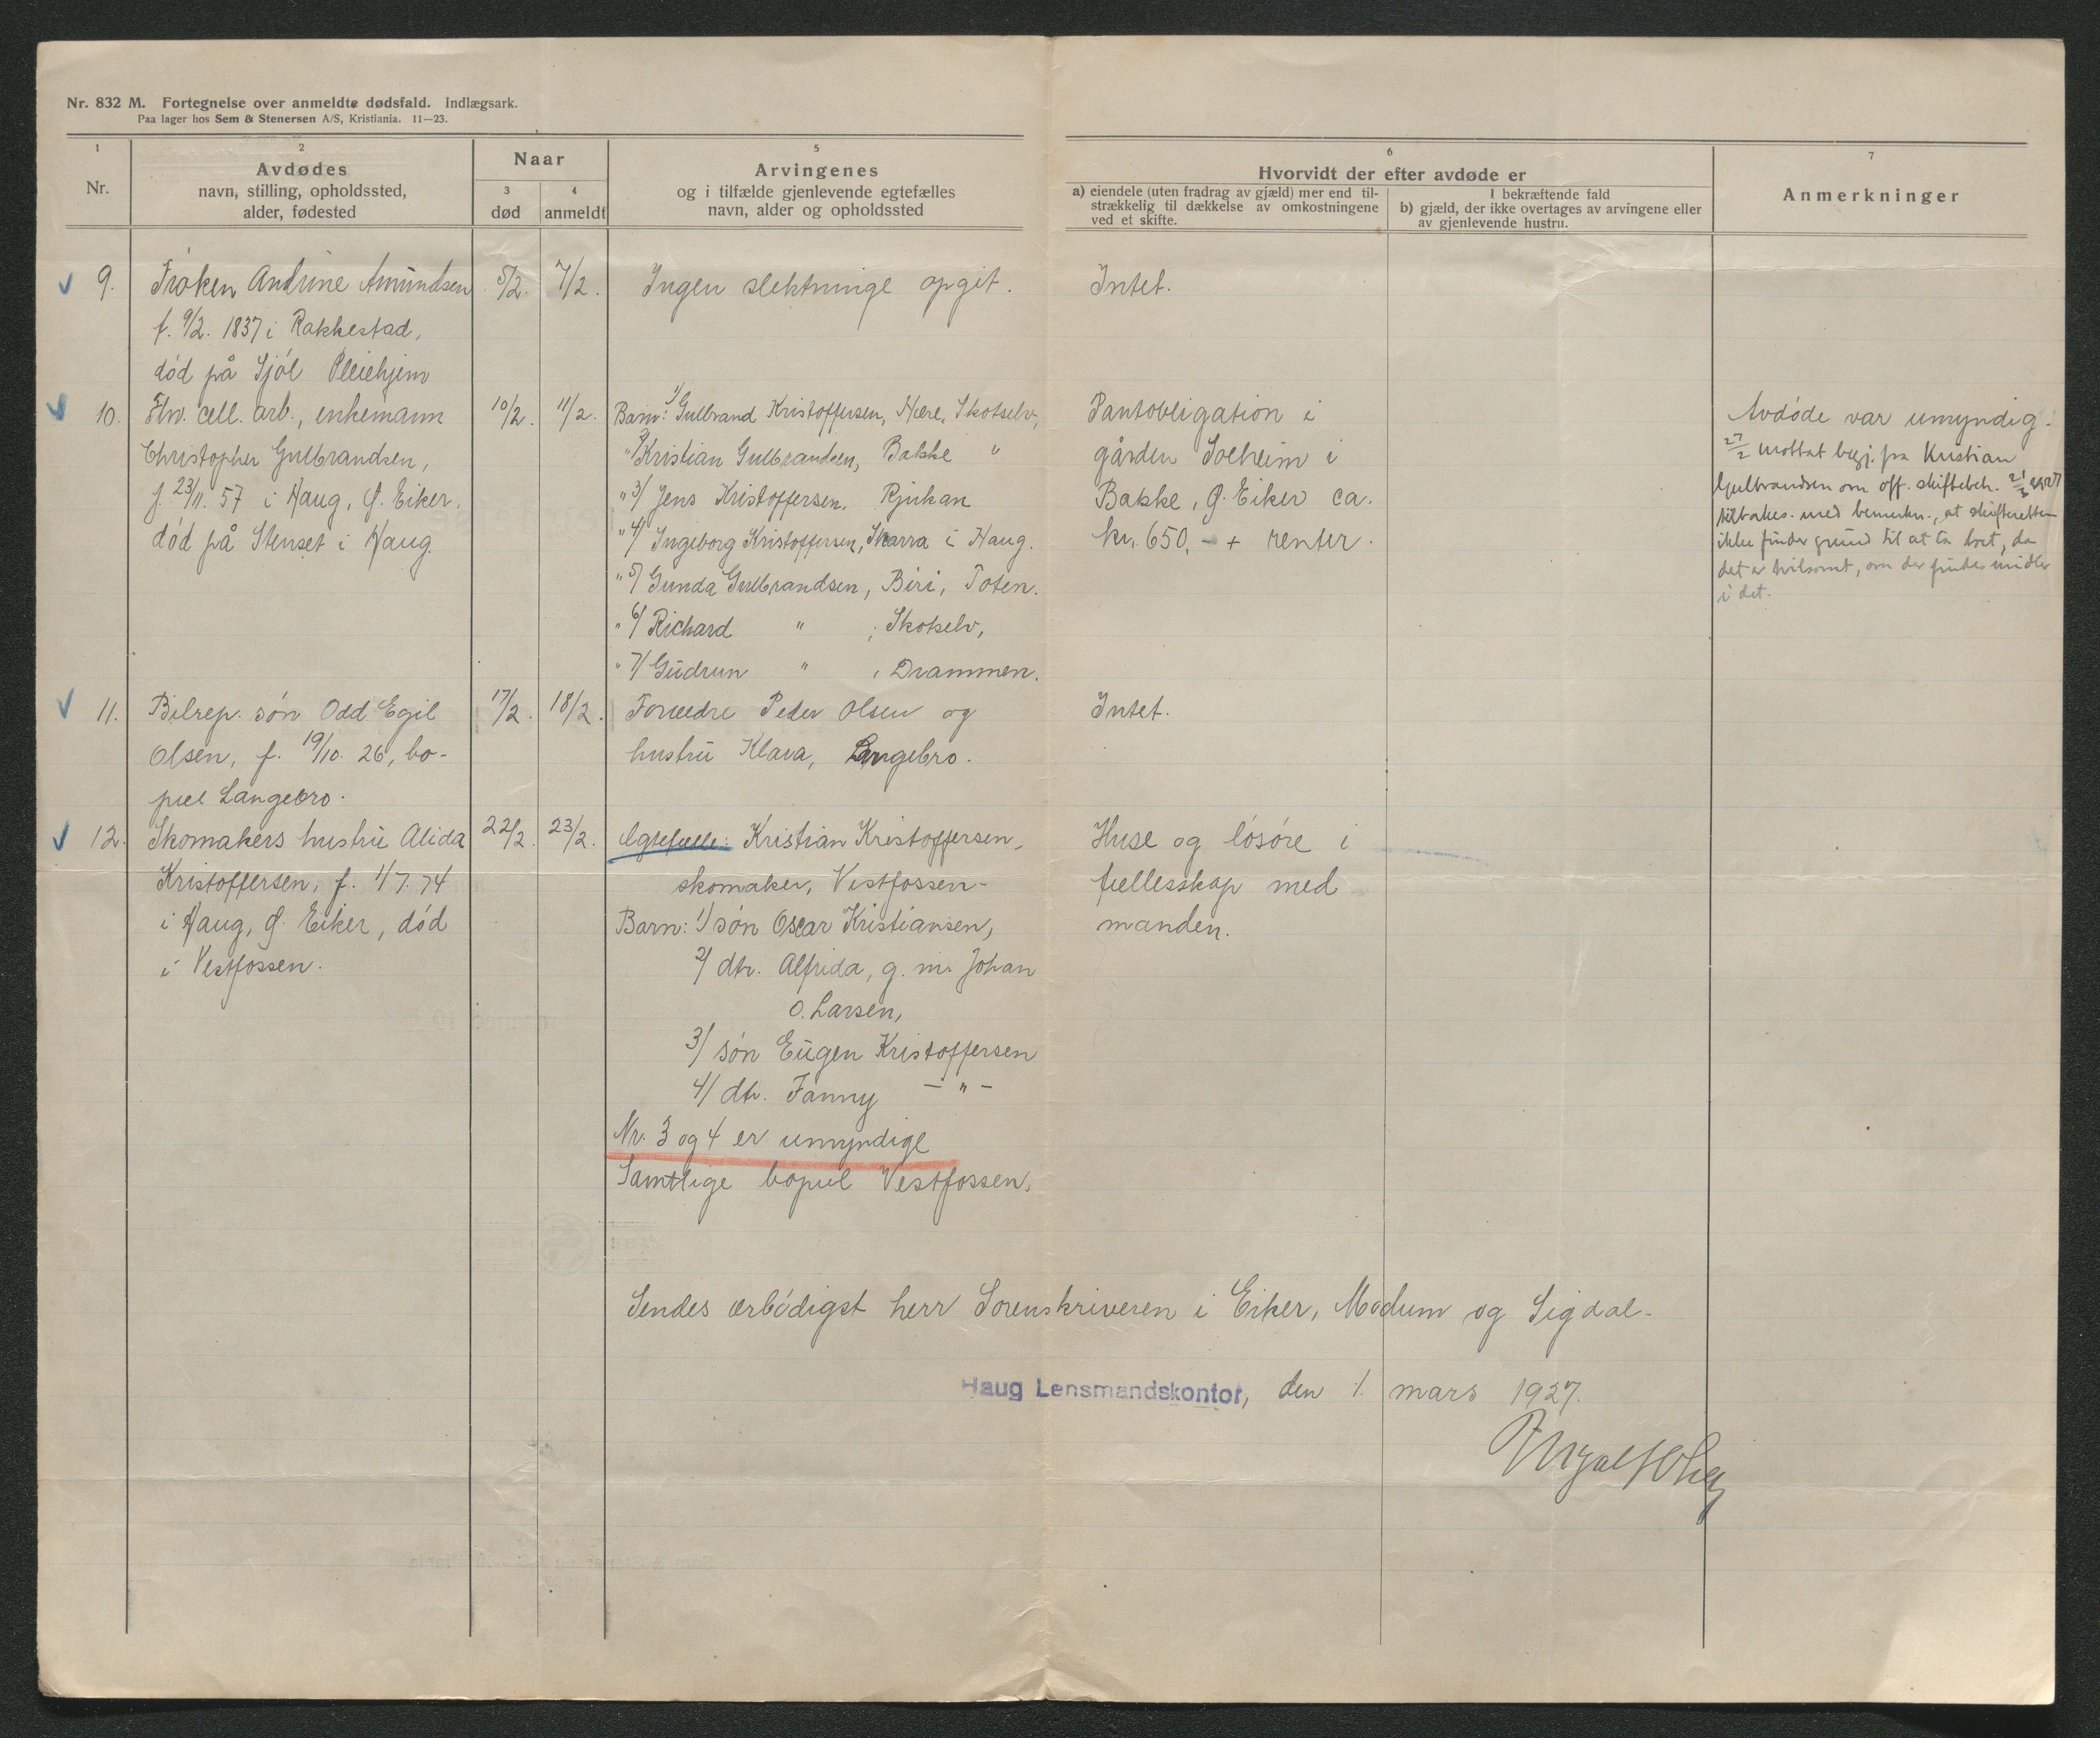 Nr. 832 M. Fortegnelse over anmeldte dødsfald. Indlægsark.
Paa lager hos Sem & Stenersen A/S, Kristiania. 11—23.
1
Nr.
2
Avdødes
navn, stilling, opholdssted,
alder, fødested
Naar
3
død
4
anmeldt
5
Arvingenes
og i tilfælde gjenlevende egtefælles
navn, alder og opholdssted
6
Hvorvidt der efter avdøde er
a) eiendele (uten fradrag av gjæld) mer end til-
strækkelig til dækkelse av omkostningene
ved et skifte.
I bekræftende fald
b) gjæld, der ikke overtages av arvingene eller
av gjenlevende hustru.
7
Anmerkninger
9.
Frøken Andrine Amundsen
f. 9/2. 1837 i Rakkestad,
død på Sjøl Pleiehjem
5/2.
7/2.
Ingen slektninge opgit.
Intet.
10.
Fhv. cell. arb., enkemann
Christopher Gulbrandsen,
f. 23/11. 57 i Haug, Ø. Eiker.
død på Stenset i Haug.
10/2.
11/2.
Barn: 1/ Gulbrand Kristoffersen, Hære, Skotselv,
" 2/ Kristian Gulbrandsen, Bakke "
" 3/ Jens Kristoffersen, Rjukan
" 4/ Ingeborg Kristoffersen, Skarra i Haug.
" 5/ Gunda Gulbrandsen, Biri, Toten.
" 6/ Richard " , Skotselv,
" 7/ Gudrun " , Drammen.
Pantobligation i
gården Solheim i
Bakke, Ø. Eiker ca.
kr. 650,- + renter.
Avdøde var umyndig.
27/2 mottat begj. fra Kristian
Gulbrandsen om off. skiftebeh.
tilbakes. med bemerkn., at skifteretten
ikke finder grund til at ta boet, da
det er tvilsomt, om der findes midler
i det.
11.
Bilrep. søn Odd Egil
Olsen, f. 19/10. 26, bo-
pæl Langebro.
17/2.
18/2.
Forældre Peder Olsen og
hustru Klara, Langebro.
Intet.
12.
Skomakers hustru Alida
Kristoffersen, f. 1/7. 74
i Haug, Ø. Eiker, død
i Vestfossen.
22/2.
23/2.
Egtefælle: Kristian Kristoffersen,
skomaker, Vestfossen-
Barn: 1/ søn Oscar Kristiansen,
2/ dtr. Alfrida, g. m. Johan
O. Larsen,
3/ søn Eugen Kristoffersen
4/ dtr. Fanny — " —
Nr. 3 og 4 er umyndige
Samtlige bopæl Vestfossen.
Huse og løsøre i
fællesskap med
manden.
Sendes ærbødigst herr Sorenskriveren i Eiker, Modum og Sigdal.
Haug Lensmandskontor, den 1. mars 1927.